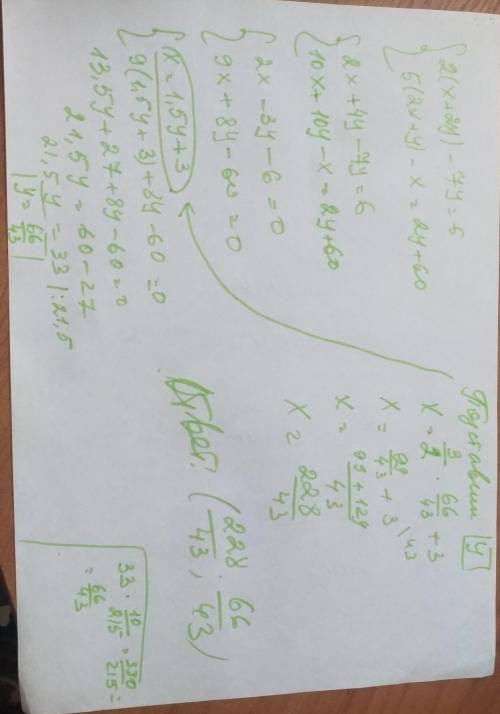 { 2(x+2y) - 7y = 6
5(2x+y) - x = 2y+60
{ 2x + 4y - 7y = 6
10x + 10y - x = 2y+60
{ 2x - 3y - 6 = 0
9x + 8y - 60 = 0
{ x = 1,5y + 3
9(1,5y + 3) + 8y - 60 = 0
13,5y + 27 + 8y - 60 = 0
21,5y = 60 - 27
21,5y = 33 | : 21,5
y = 66/43
Подставим y
x = 3/2 · 66/43 + 3
x = 99/43 + 3 \43
x = 99 + 129/43
x = 228/43
Ответ: (228/43; 66/43)
33 · 10/215 = 330/215 =
= 66/43